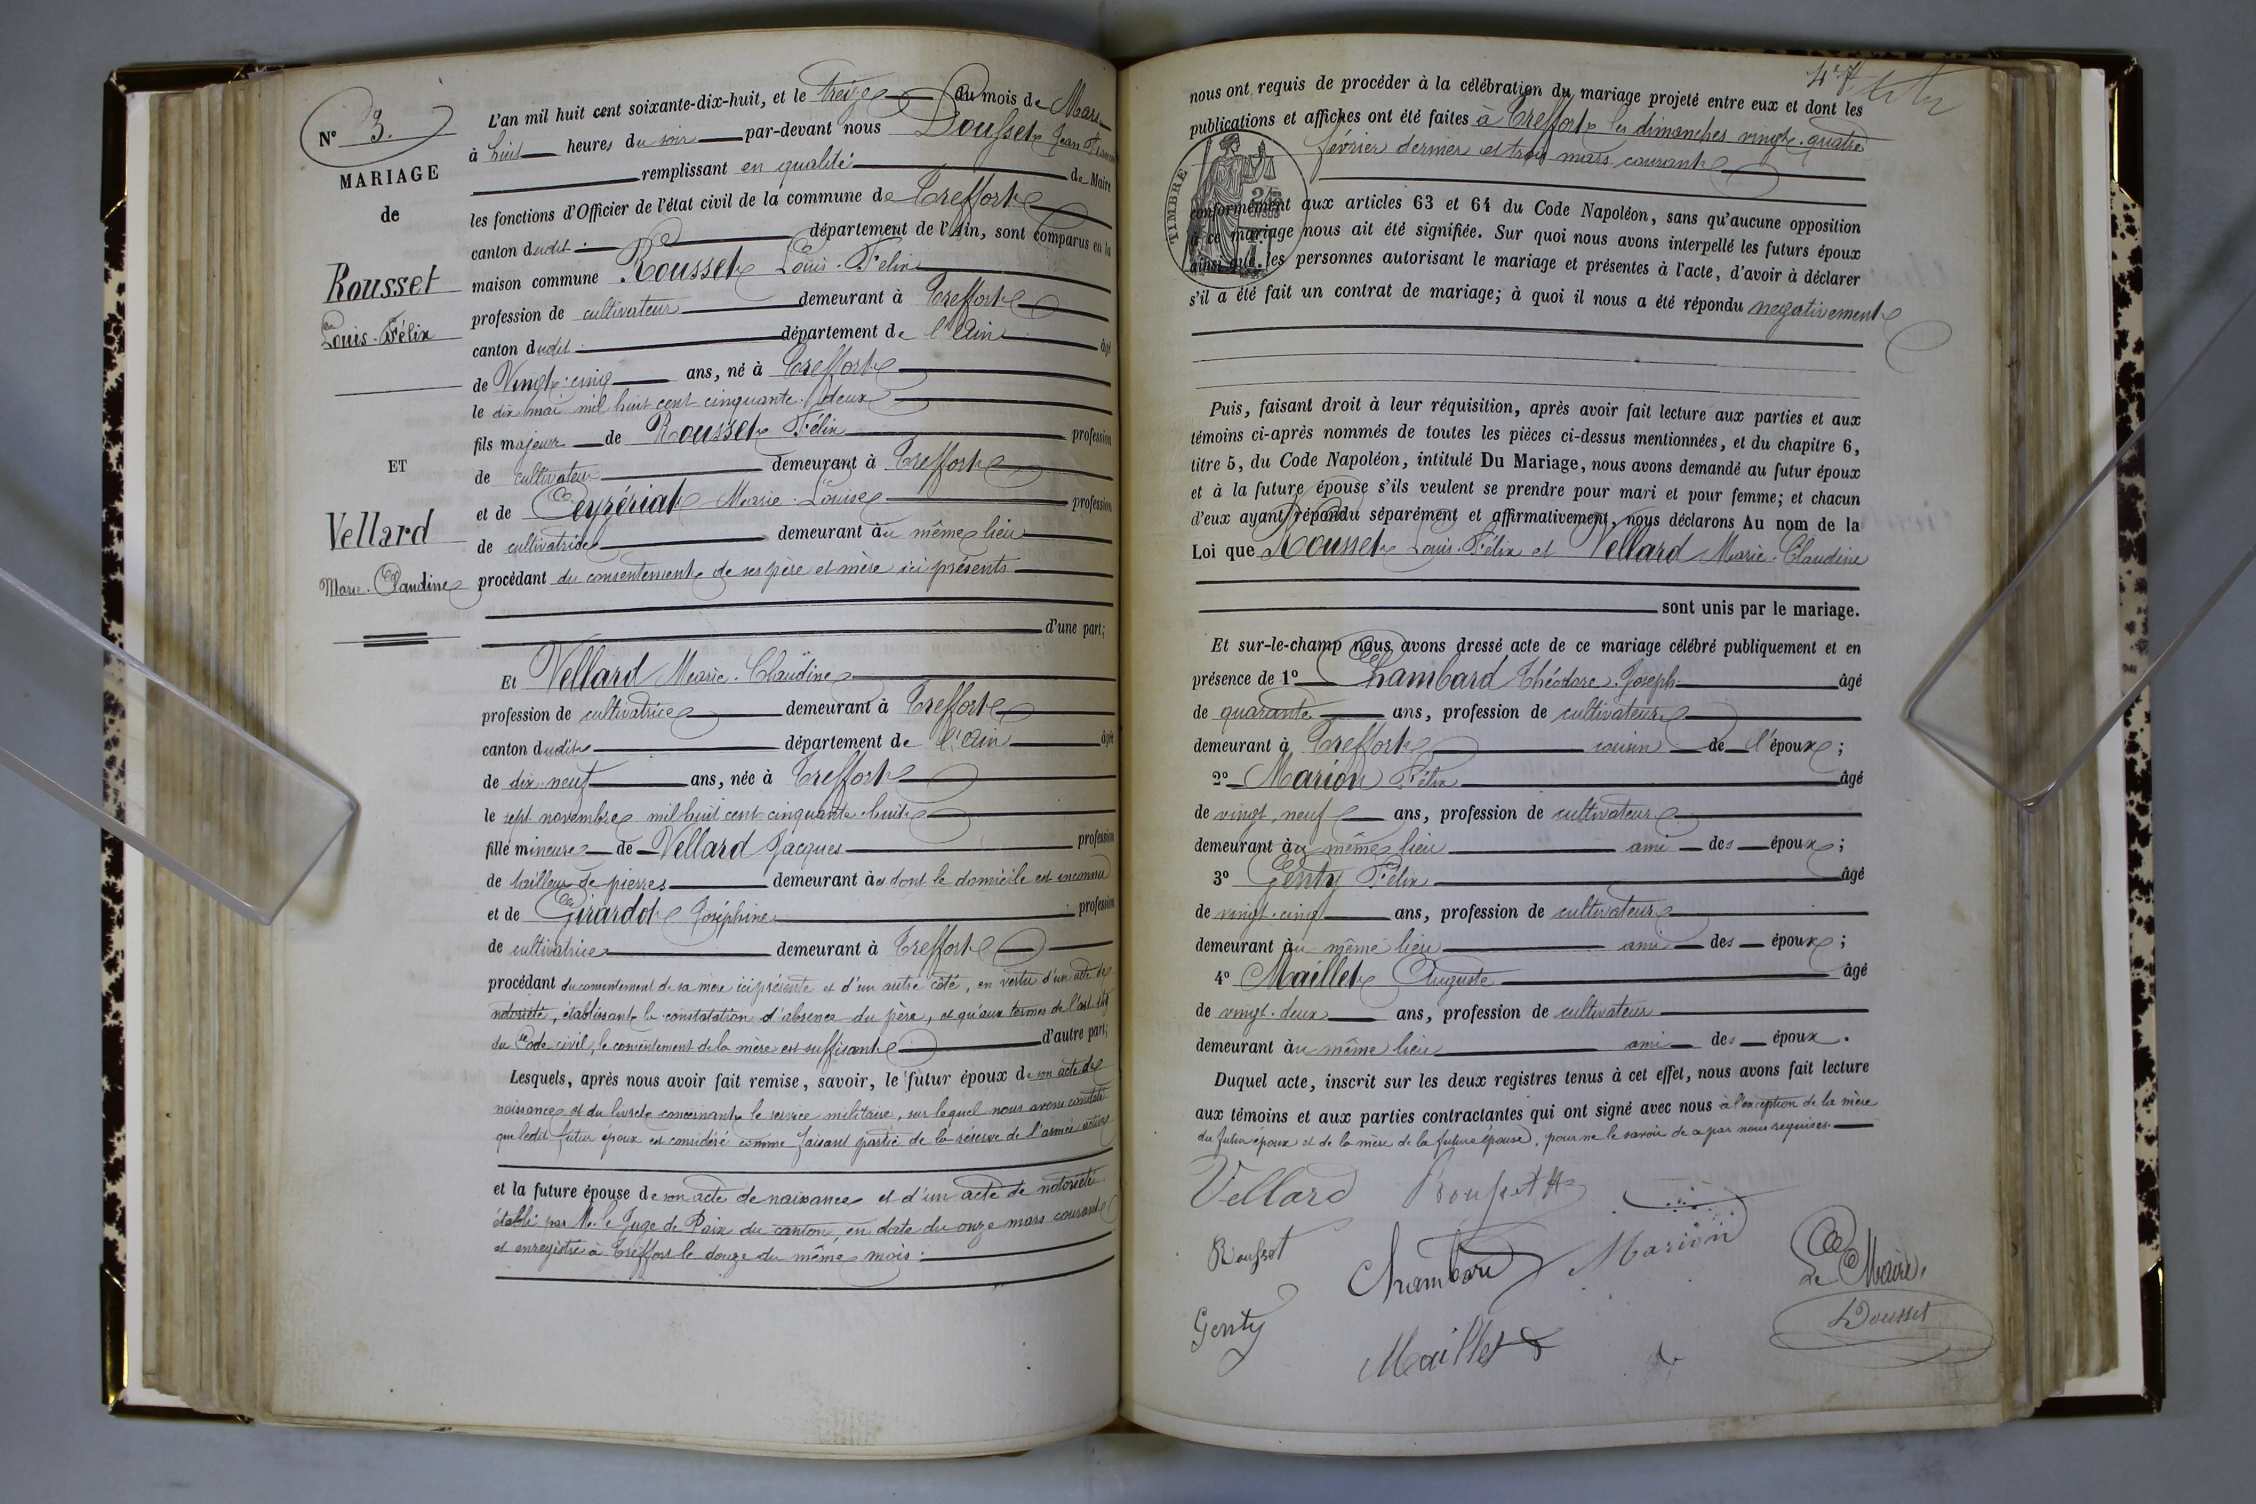 N° 3.
MARIAGE
de
Rousset
Louis-Félix
ET
Vellard
Marie-Claudine
L'an mil huit cent soixante-dix-huit, et le treize du mois de Mars
à huit heures du soir par-devant nous Dousset Jean
remplissant en qualité de Maire
les fonctions d'Officier de l'état civil de la commune de Treffort
canton dudit département de l'Ain, sont comparus en la
maison commune Rousset Louis-Félix
profession de cultivateur demeurant à Treffort
canton dudit département de l'Ain âgé
de Vingt-cinq ans, né à Treffort
le dix mai mil huit cent cinquante-deux
fils majeur de Rousset Félix profession
de cultivateur demeurant à Treffort
et de Ceyzériat Marie-Louise profession
de cultivatrice demeurant au même lieu
procédant du consentement de ses père et mère ici présents
d'une part;
Et Vellard Marie-Claudine
profession de cultivatrice demeurant à Treffort
canton dudit département de l'Ain âgée
de dix-neuf ans, née à Treffort
le sept novembre mil huit cent cinquante-huit
fille mineure de Vellard Jacques profession
de tailleur de pierres demeurant à dont le domicile est inconnu
et de Girardot Joséphine profession
de cultivatrice demeurant à Treffort
procédant du consentement de sa mère ici présente et d'un autre côté, en vertu d'un acte de
notoriété, établissant la constatation d'absence du père, et qu'aux termes de l'art. 149
du Code civil, le consentement de la mère est suffisant d'autre part;
Lesquels, après nous avoir fait remise, savoir, le futur époux de son acte de
naissance et du livret concernant le service militaire, sur lequel nous avons constaté
que ledit futur époux est considéré comme faisant partie de la réserve de l'armée active
et la future épouse de son acte de naissance et d'un acte de notoriété
établi par M. le Juge de Paix du canton, en date du onze mars courant
et enregistré à Treffort le douze du même mois.
nous ont requis de procéder à la célébration du mariage projeté entre eux et dont les
publications et affiches ont été faites à Treffort les dimanches vingt-quatre
février dernier et trois mars courant
TIMBRE
conformément aux articles 63 et 64 du Code Napoléon, sans qu'aucune opposition
à ce mariage nous ait été signifiée. Sur quoi nous avons interpellé les futurs époux
ainsi que les personnes autorisant le mariage et présentes à l'acte, d'avoir à déclarer
s'il a été fait un contrat de mariage; à quoi il nous a été répondu négativement
Puis, faisant droit à leur réquisition, après avoir fait lecture aux parties et aux
témoins ci-après nommés de toutes les pièces ci-dessus mentionnées, et du chapitre 6,
titre 5, du Code Napoléon, intitulé Du Mariage, nous avons demandé au futur époux
et à la future épouse s'ils veulent se prendre pour mari et pour femme; et chacun
d'eux ayant répondu séparément et affirmativement, nous déclarons Au nom de la
Loi que Rousset Louis-Félix et Vellard Marie-Claudine
sont unis par le mariage.
Et sur-le-champ nous avons dressé acte de ce mariage célébré publiquement et en
présence de 1° Chambard Théodore-Joseph âgé
de quarante ans, profession de cultivateur
demeurant à Treffort cousin de l'époux;
2° Marion Félix âgé
de vingt-neuf ans, profession de cultivateur
demeurant au même lieu ami des époux;
3° Genty Félix âgé
de vingt-cinq ans, profession de cultivateur
demeurant au même lieu ami des époux;
4° Maillet Auguste âgé
de vingt-deux ans, profession de cultivateur
demeurant au même lieu ami des époux.
Duquel acte, inscrit sur les deux registres tenus à cet effet, nous avons fait lecture
aux témoins et aux parties contractantes qui ont signé avec nous à l'exception de la mère
du futur époux et de la mère de la future épouse, pour ne le savoir de ce par nous requises.
Vellard Rousset
Rousset Chambard Marion
Le Maire,
Genty Maillet Dousset